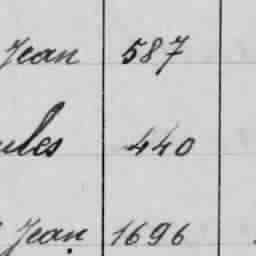 Jean 587
ules 440
Jean 1696